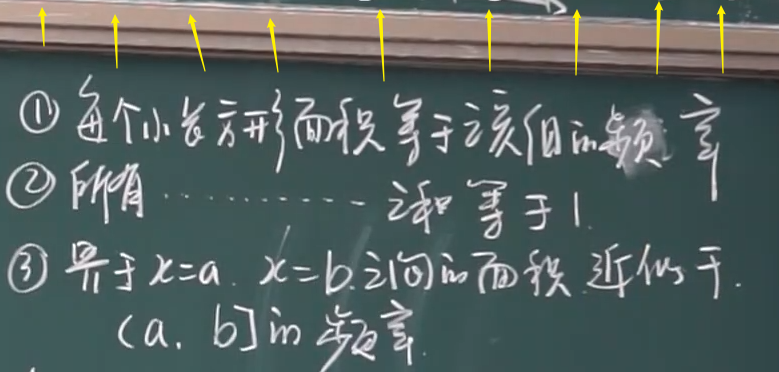 ① 每个小长方形面积等于该组的频率
② 所有…………之和等于1.
③ 界于x=a. x=b.之间的面积.近似于.
(a, b]的频率.